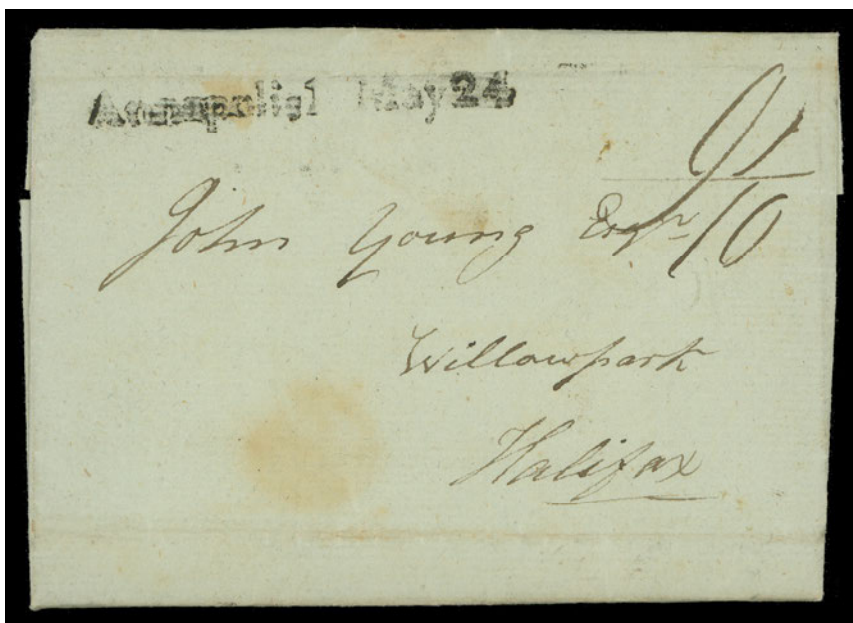 Annapolis May 24
9/
John Young Esqr
/10
Willowpark
Halifax